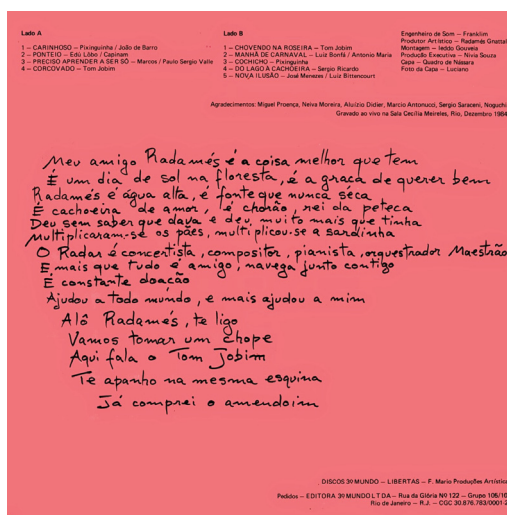 Lado A
1 – CARINHOSO – Pixinguinha / João de Barro
2 – PONTEIO – Edú Lôbo / Capinam
3 – PRECISO APRENDER A SER SÓ – Marcos / Paulo Sergio Valle
4 – CORCOVADO – Tom Jobim
Lado B
1 – CHOVENDO NA ROSEIRA – Tom Jobim
2 – MANHÃ DE CARNAVAL – Luiz Bonfá / Antonio Maria
3 – COCHICHO – Pixinguinha
4 – DO LAGO À CACHOEIRA – Sergio Ricardo
5 – NOVA ILUSÃO – José Menezes / Luiz Bittencourt
Engenheiro de Som – Franklim
Produtor Artístico – Radamés Gnattal
Montagem – Ieddo Gouveia
Produção Executiva – Nivia Souza
Capa – Quadro de Nássara
Foto da Capa – Luciano
Agradecimentos: Miguel Proença, Neiva Moreira, Aluizio Didier, Marcio Antonucci, Sergio Saraceni, Noguchi
Gravado ao vivo na Sala Cecília Meireles, Rio, Dezembro 1984
Meu amigo Radamés é a coisa melhor que tem
É um dia de sol na floresta, é a graça de querer bem
Radamés é água alta, é fonte que nunca séca
É cachoeira de amor, é chorão, rei da peteca
Deu sem saber que dava e deu muito mais que tinha
Multiplicaram-se os pães, multiplicou-se a sardinha
O Radar é concertista, compositor, pianista, orquestrador Maestrão
E mais que tudo é amigo, navega junto contigo
É constante doação
Ajudou a todo mundo, e mais ajudou a mim
Alô Radamés, te ligo
Vamos tomar um chope
Aqui fala o Tom Jobim
Te apanho na mesma esquina
Já comprei o amendoim
DISCOS 3º MUNDO – LIBERTAS – F. Mario Produções Artística
Pedidos – EDITORA 3º MUNDO LTDA – Rua da Glória Nº 122 – Grupo 105/10
Rio de Janeiro – R.J. – CGC 30.876.783/0001-2